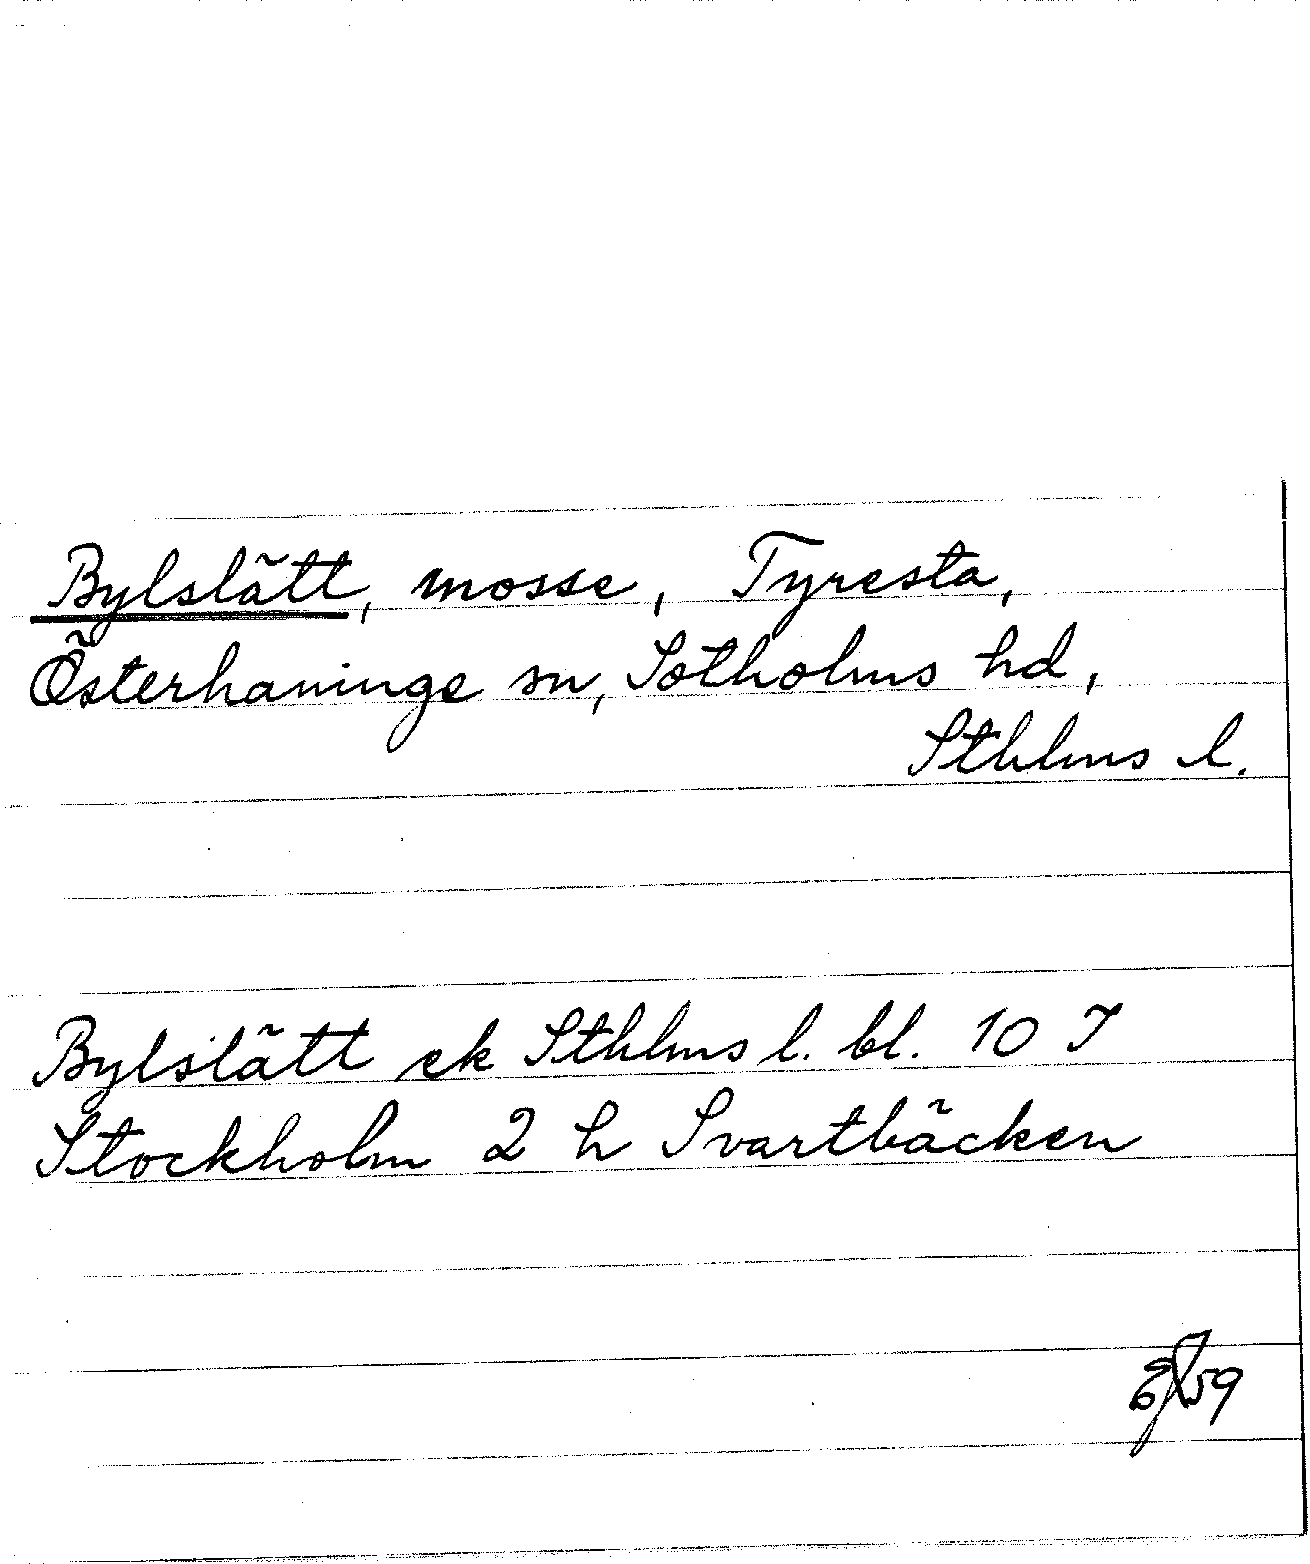 Bylslätt, mosse, Tyresta,
Österhaninge sn, Sotholms hd,
Sthlms l.
Bylslätt ek Sthlms l. bl. 10 I
Stockholm 2 h Svartbäcken
59